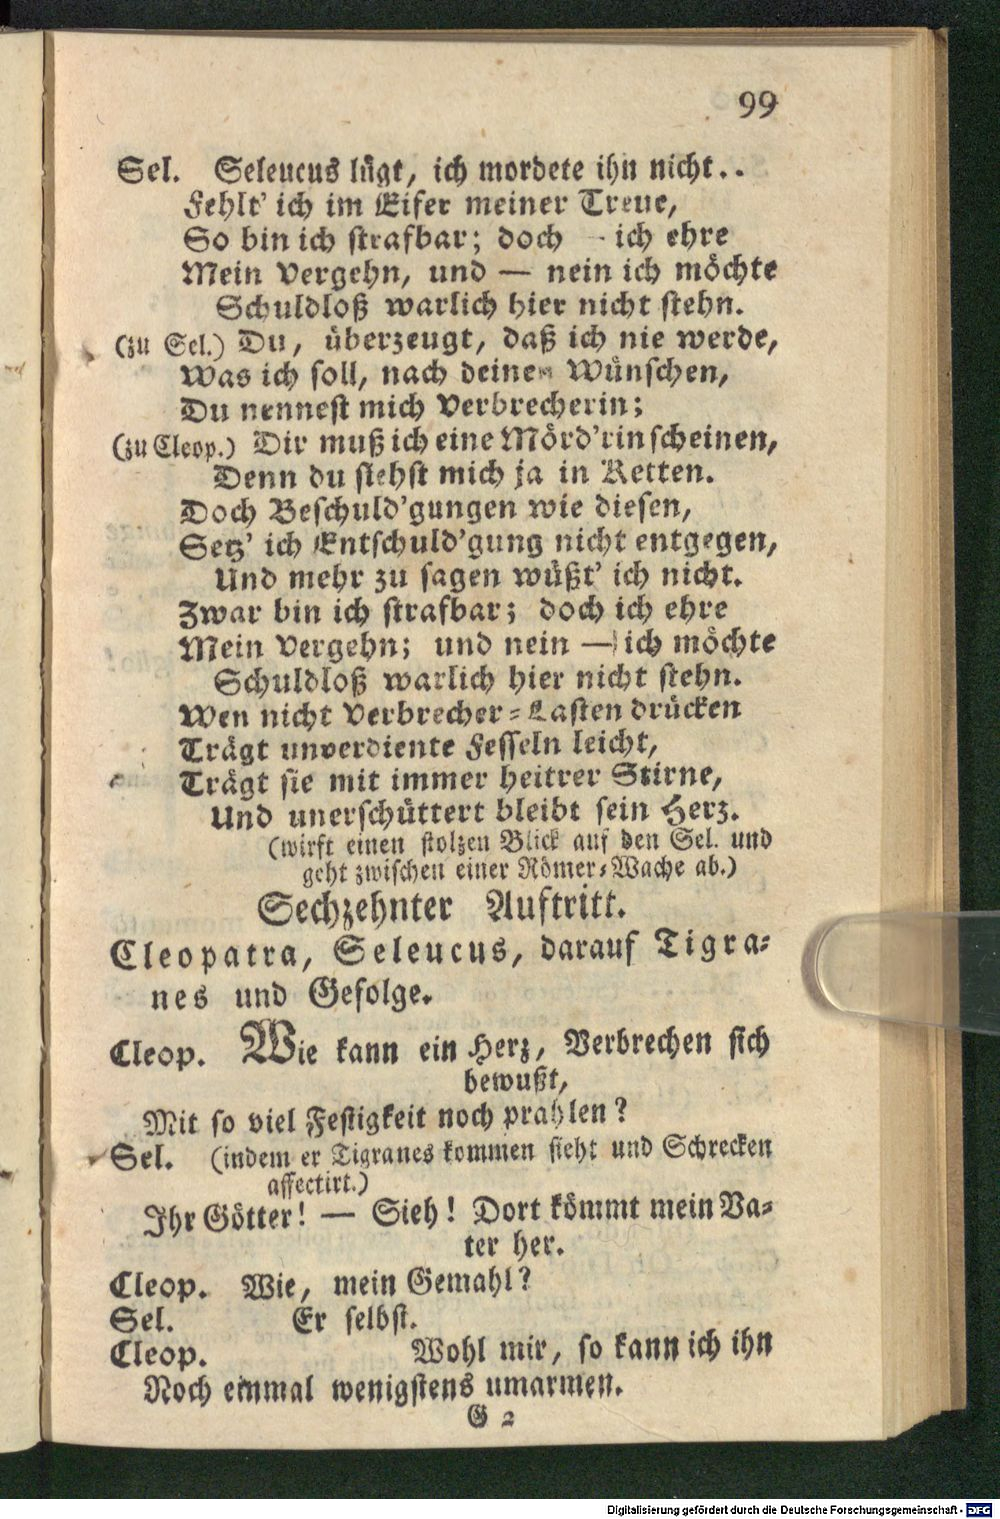 99
Sel. Seleucus lügt, ich mordete ihn nicht..
Fehlt' ich im Eifer meiner Treue,
So bin ich strafbar; doch — ich ehre
Mein Vergehn, und — nein ich möchte
Schuldloß warlich hier nicht stehn.
(zu Sel.) Du, überzeugt, daß ich nie werde,
Was ich soll, nach deinen Wünschen,
Du nennest mich Verbrecherin;
(zu Cleop.) Dir muß ich eine Mörd'rin scheinen,
Denn du siehst mich ja in Ketten.
Doch Beschuld'gungen wie diesen,
Setz' ich Entschuld'gung nicht entgegen,
Und mehr zu sagen wüßt' ich nicht.
Zwar bin ich strafbar; doch ich ehre
Mein Vergehn; und nein — ich möchte
Schuldloß warlich hier nicht stehn.
Wen nicht Verbrecher-Lasten drücken
Trägt unverdiente Fesseln leicht,
Trägt sie mit immer heitrer Stirne,
Und unerschüttert bleibt sein Herz.
(wirft einen stolzen Blick auf den Sel. und
geht zwischen einer Römer-Wache ab.)
Sechzehnter Auftritt.
Cleopatra, Seleucus, darauf Tigra-
nes und Gefolge.
Cleop. Wie kann ein Herz, Verbrechen sich
bewußt,
Mit so viel Festigkeit noch prahlen?
Sel. (indem er Tigranes kommen sieht und Schrecken
affectirt.)
Ihr Götter! — Sieh! Dort kömmt mein Va-
ter her.
Cleop. Wie, mein Gemahl?
Sel. Er selbst.
Cleop. Wohl mir, so kann ich ihn
Noch einmal wenigstens umarmen.
G 2
Digitalisierung gefördert durch die Deutsche Forschungsgemeinschaft - DFG